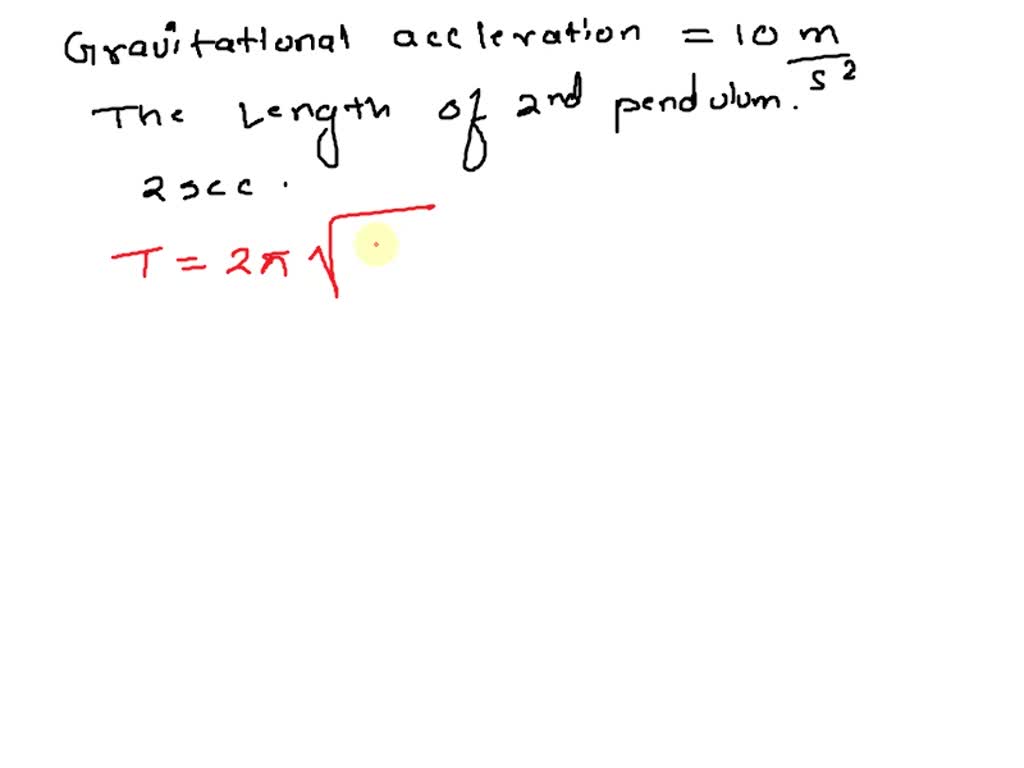 Gravitational accleration = 10 m/s²
The Length of 2nd pendulum.
2 sec.
T = 2π √